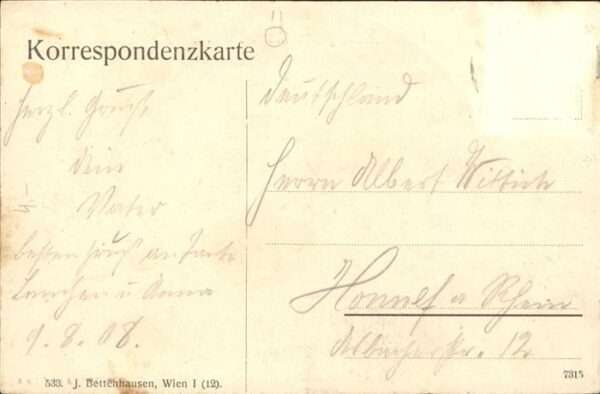 Ö
Korrespondenzkarte
Herzl. Gruß
Dein
Vater
besten Gruß an Tante
Lenchen u Anna
9.8.08.
Deutschland
Herrn Albert Wittich
Honnef a Rhein
str. 12
533. J. Bettenhausen, Wien I (12).
7315